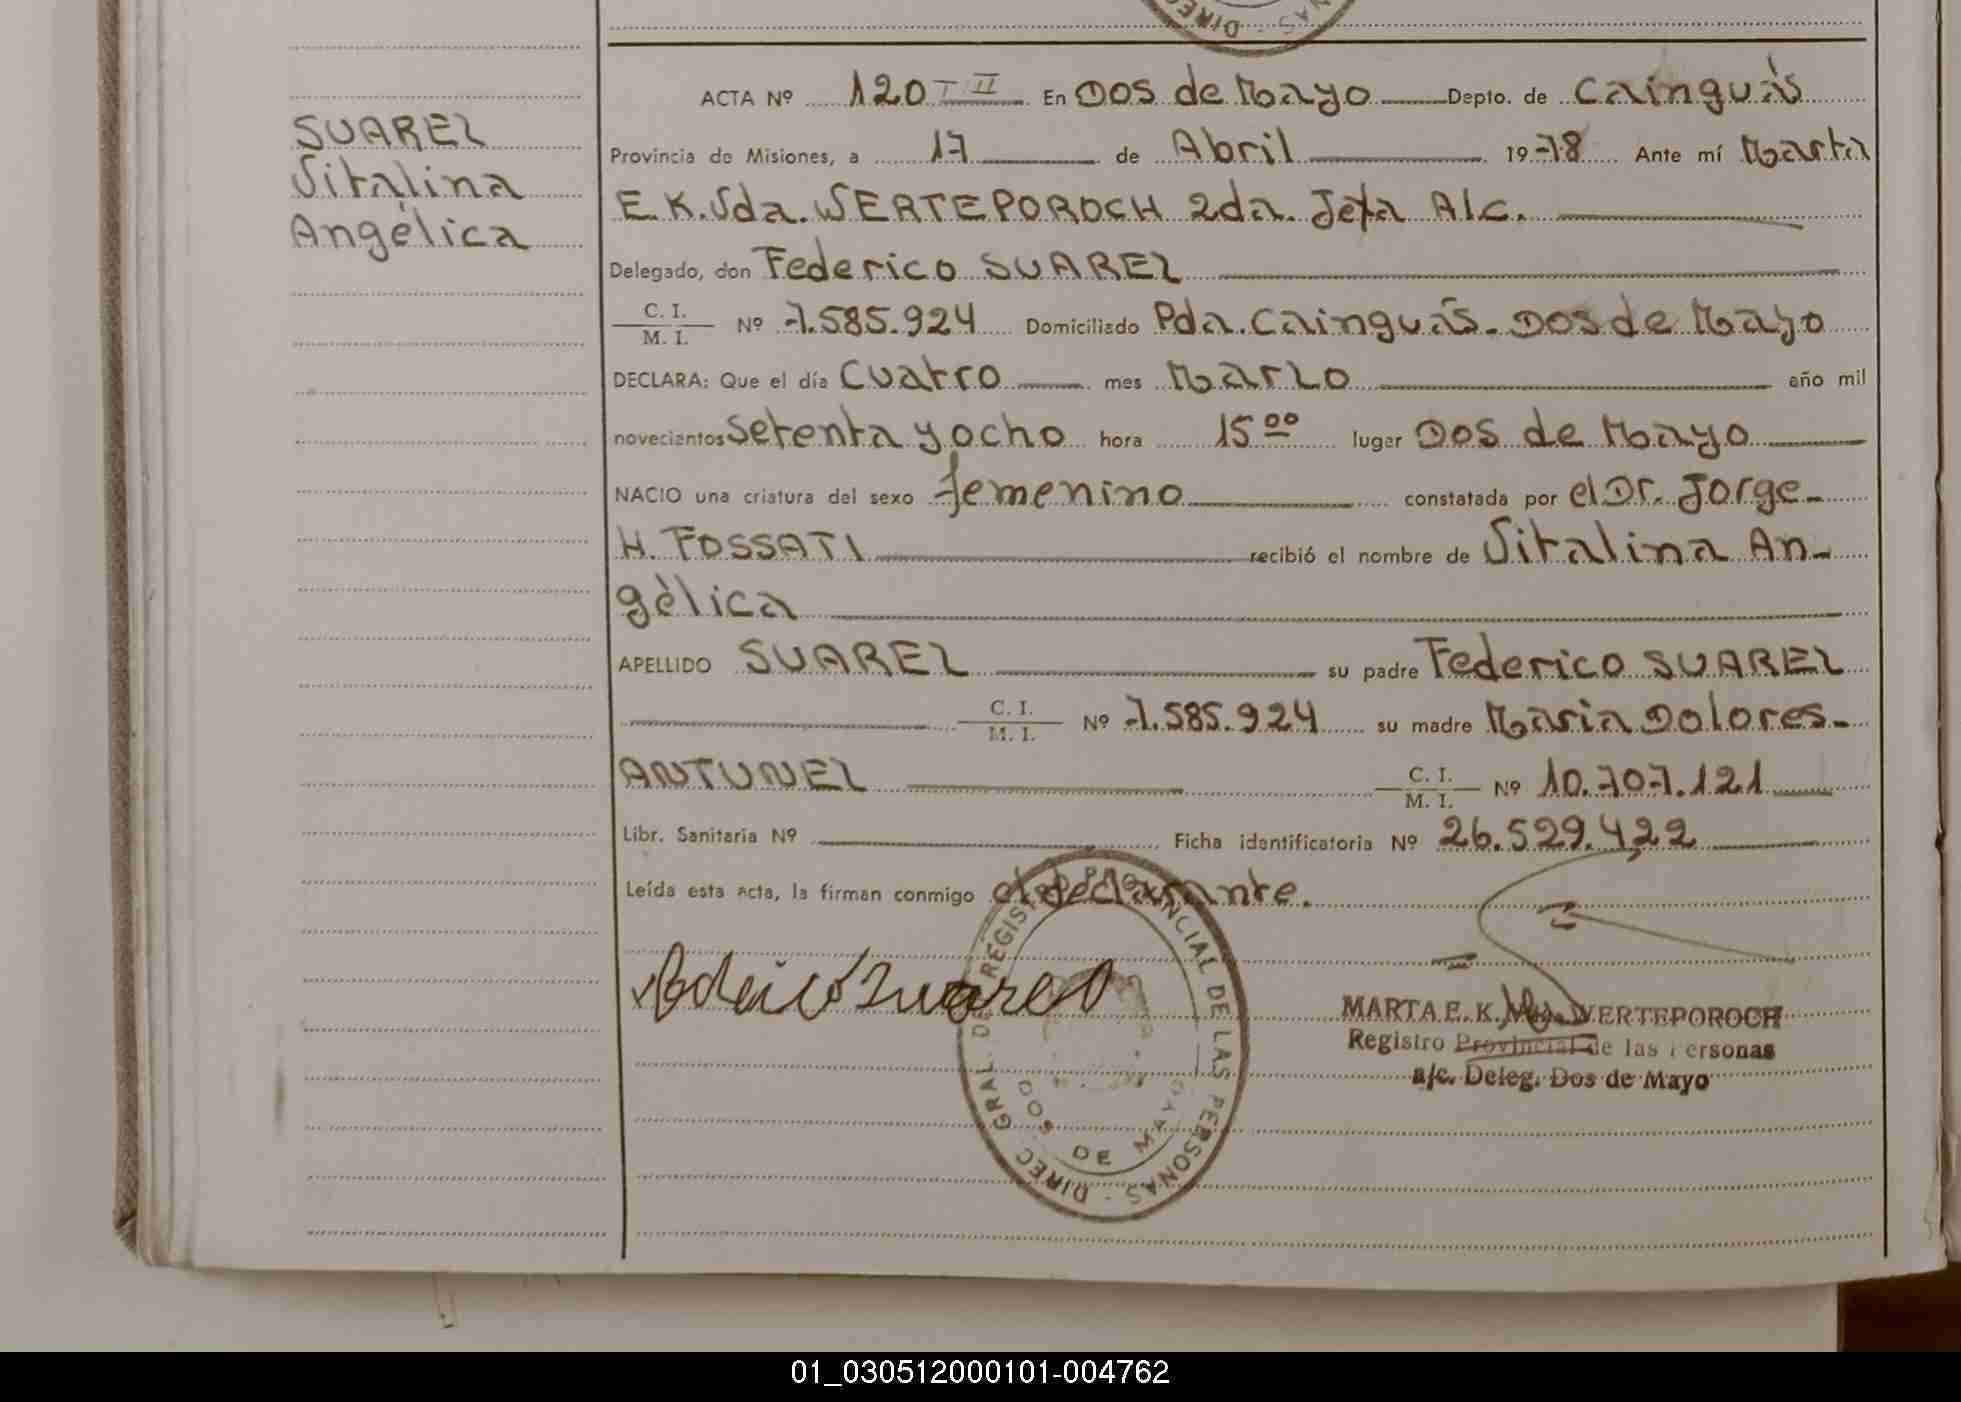 DIREC
NAS
ACTA Nº 120 T II En Dos de Mayo Depto. de Cainguás
SUAREZ
Vitalina
Angélica
Provincia de Misiones, a 17 de Abril 1978 Ante mí Marta
E.K. Vda. WERTEPOROCH 2da. Jefa Alc.
Delegado, don Federico SUAREZ
C. I.
M. I. Nº 7.585.924 Domiciliado Pda. Cainguás - Dos de Mayo
DECLARA: Que el día cuatro mes Marzo año mil
novecientos setenta y ocho hora 15 00 lugar Dos de Mayo
NACIO una criatura del sexo femenino constatada por el Dr. Jorge
H. FOSSATI recibió el nombre de Vitalina An-
gélica
APELLIDO SUAREZ su padre Federico SUAREZ
C. I.
M. I. Nº 7.585.924 su madre Maria Dolores
ANTUNEZ C. I.
M. I. Nº 10.707.121
Libr. Sanitaria Nº Ficha identificatoria Nº 26.529.422
Leída esta acta, la firman conmigo el declarante.
Federico Suarez
DIREC GRAL DE REGISTRO PROVINCIAL DE LAS PERSONAS -
DOS DE MAYO
MARTA E. K. Vda. WERTEPOROCH
Registro Provincial de las Personas
a/c. Deleg. Dos de Mayo
01_030512000101-004762